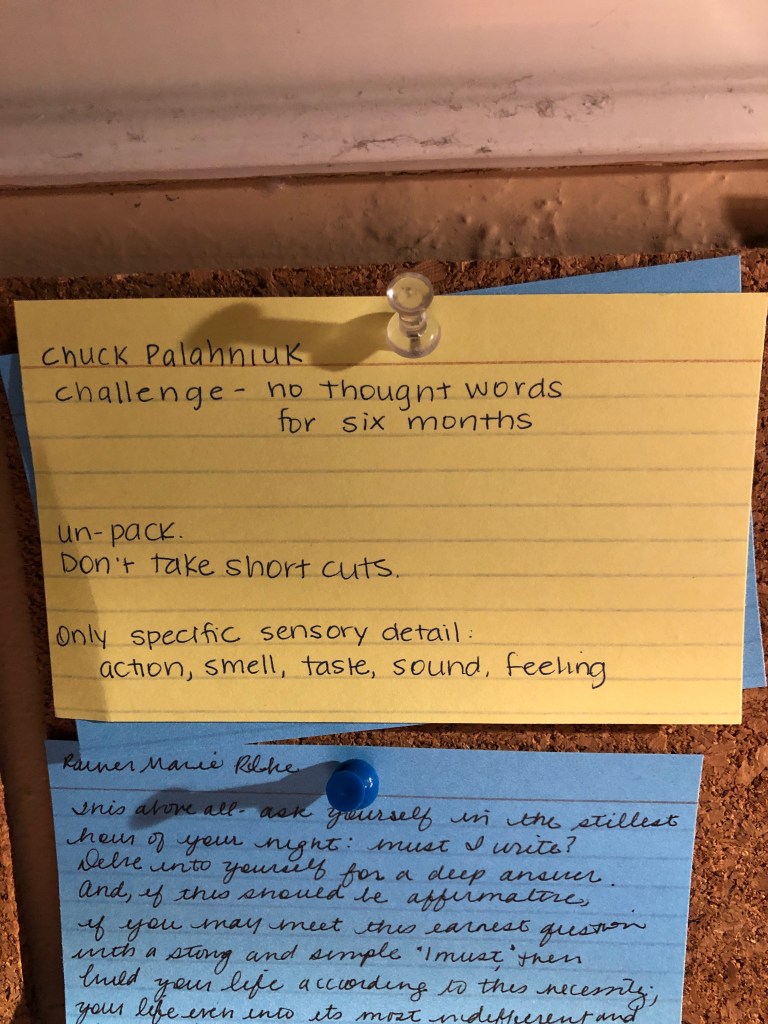 Chuck Palahniuk
challenge - no thought words
for six months
un-pack.
Don't take short cuts.
Only specific sensory detail:
action, smell, taste, sound, feeling
Rainer Marie Rilke
This above all - ask yourself in the stillest
hour of your night: must I write?
Delve into yourself for a deep answer.
And, if this should be affirmative,
if you may meet this earnest question
with a strong and simple "I must," then
build your life according to this necessity;
your life even into its most indifferent and